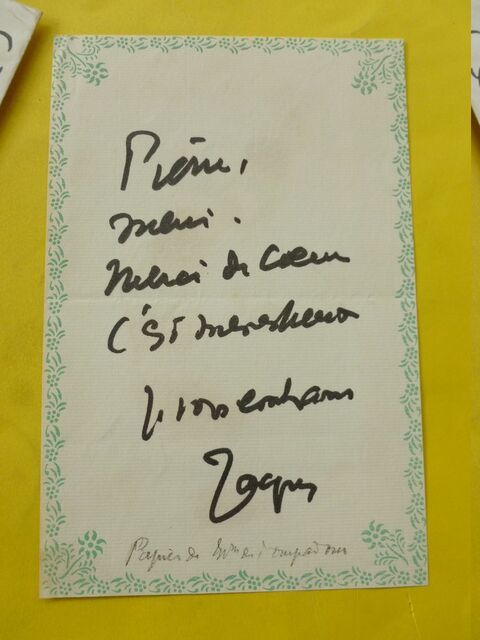 Pierre,
merci.
Merci du Coeur
C'est merveilleux
Je vous embrasse
Jacques
Papier de Mme de Pompadour